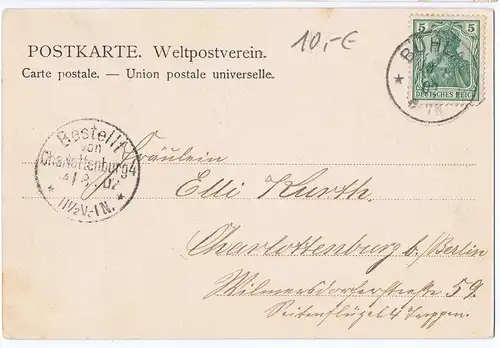 POSTKARTE. Weltpostverein.
Carte postale. — Union postale universelle.
10,-€
5 5
DEUTSCHES REICH
BÜHL
6-7N
Bestellt
von
Charlottenburg 4
11½V.-1N.
Fräulein
Elli Kurth.
Charlottenburg b/Berlin
Wilmersdorferstraße 59.
Seitenflügel 4 Treppen.